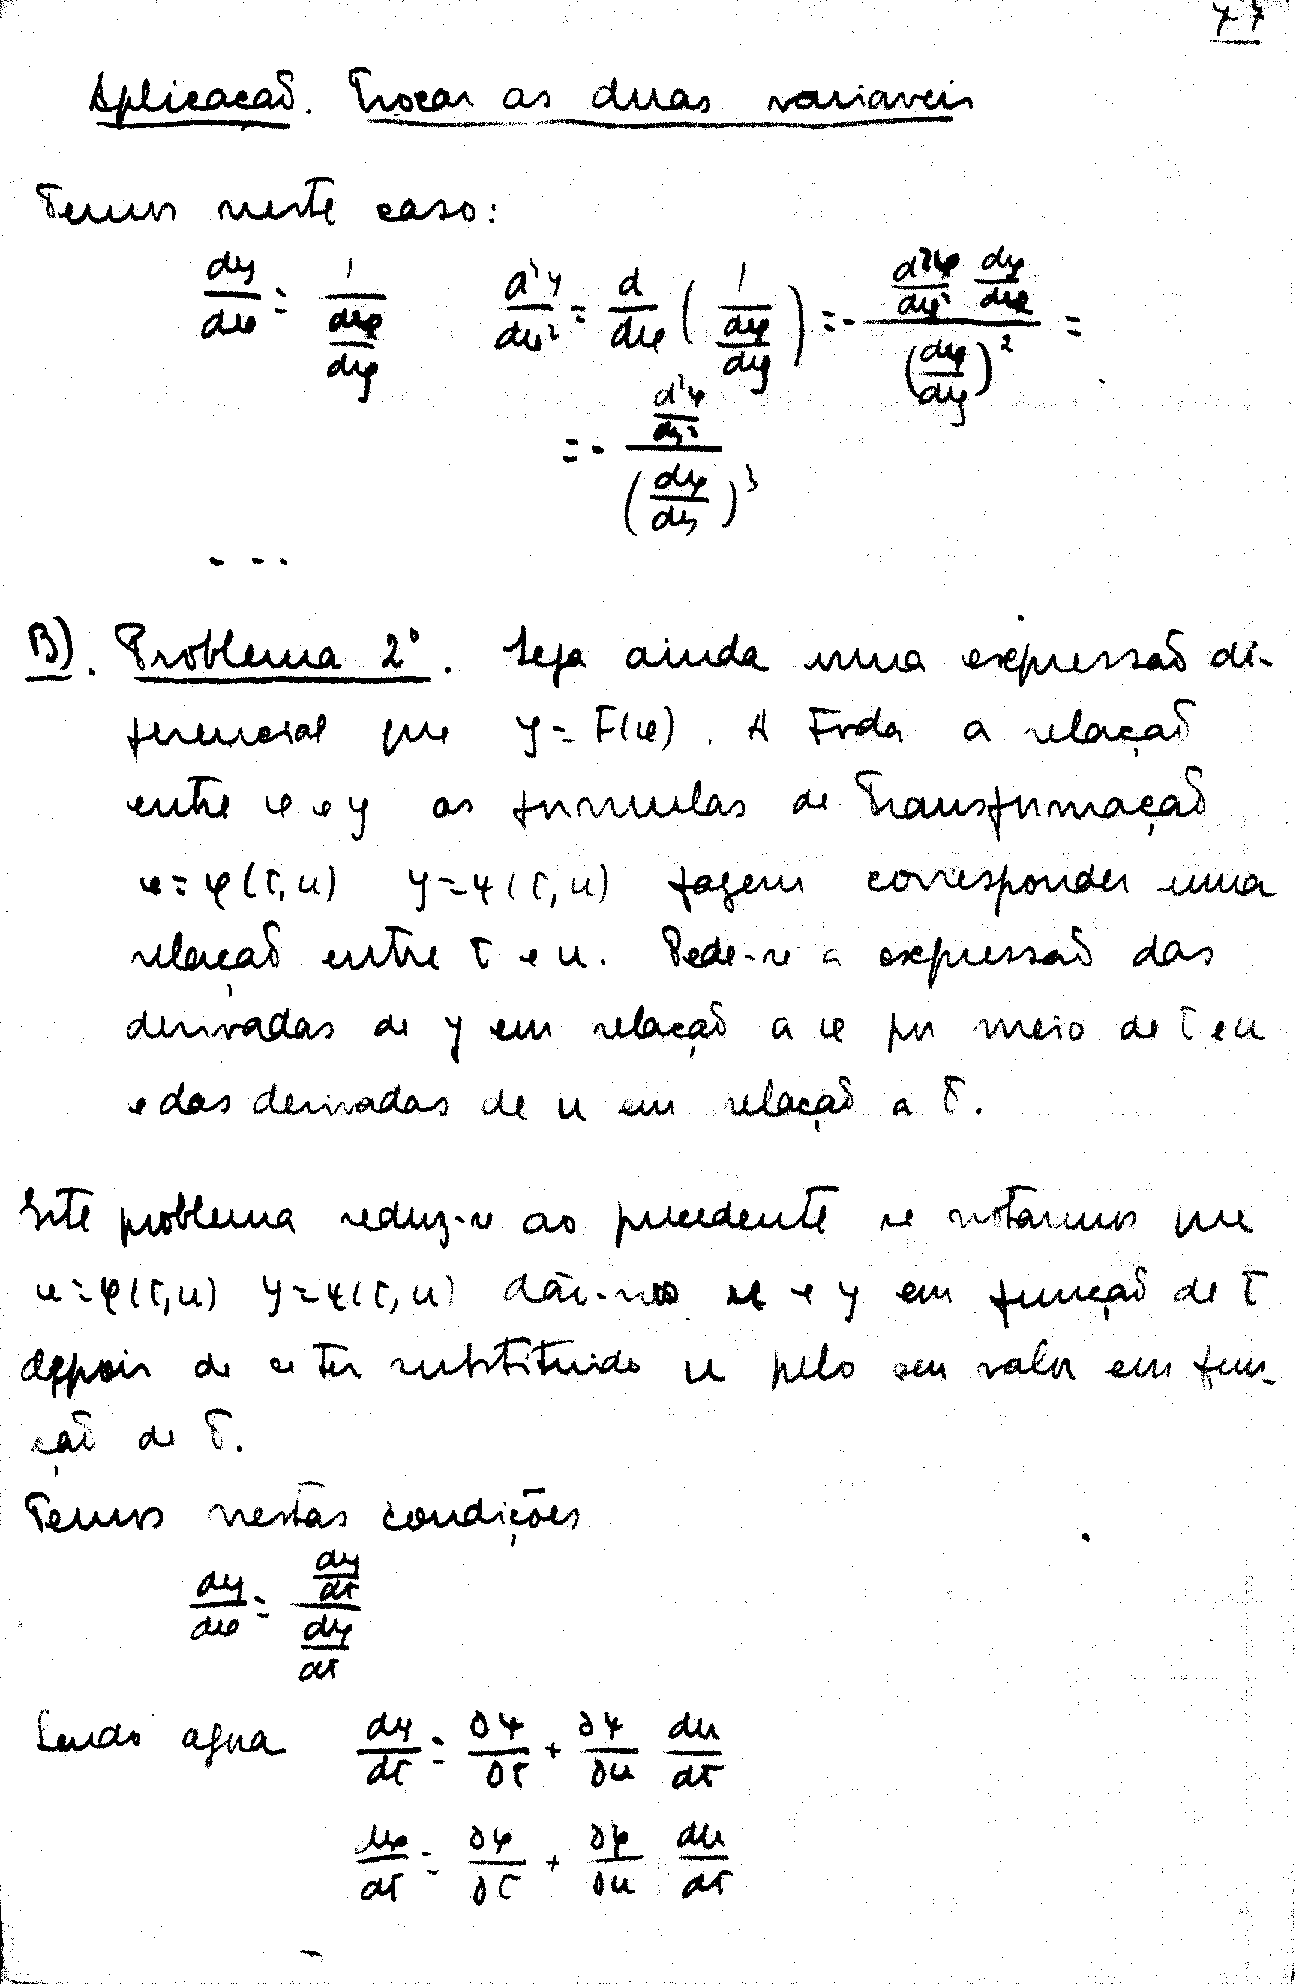 77
Aplicação. Trocar as duas variaveis
Temos neste caso:
dy/dx = 1/(dx/dy)   d²y/dx² = d/dx (1/(dx/dy)) = - (d²x/dy² dy/dx)/(dx/dy)² =
= - (d²x/dy²)/(dx/dy)³
...
B). Problema 2º. Seja ainda uma expressão di-
ferencial que y = F(x). A toda a relação
entre x e y as formulas de transformação
x = φ(t,u) y = ψ(t,u) fazem corresponder uma
relação entre t e u. Pede-se a expressão das
derivadas de y em relação a x por meio de t e u
e das derivadas de u em relação a t.
Este problema reduz-se ao precedente se notarmos que
x = φ(t,u) y = ψ(t,u) dão-nos x e y em função de t
depois de se ter substituido u pelo seu valor em fun-
ção de t.
Temos nestas condições
dy/dx = (dy/dt)/(dy/dt)
Sendo agora dy/dt = ∂ψ/∂t + ∂ψ/∂u du/dt
dx/dt = ∂φ/∂t + ∂φ/∂u du/dt